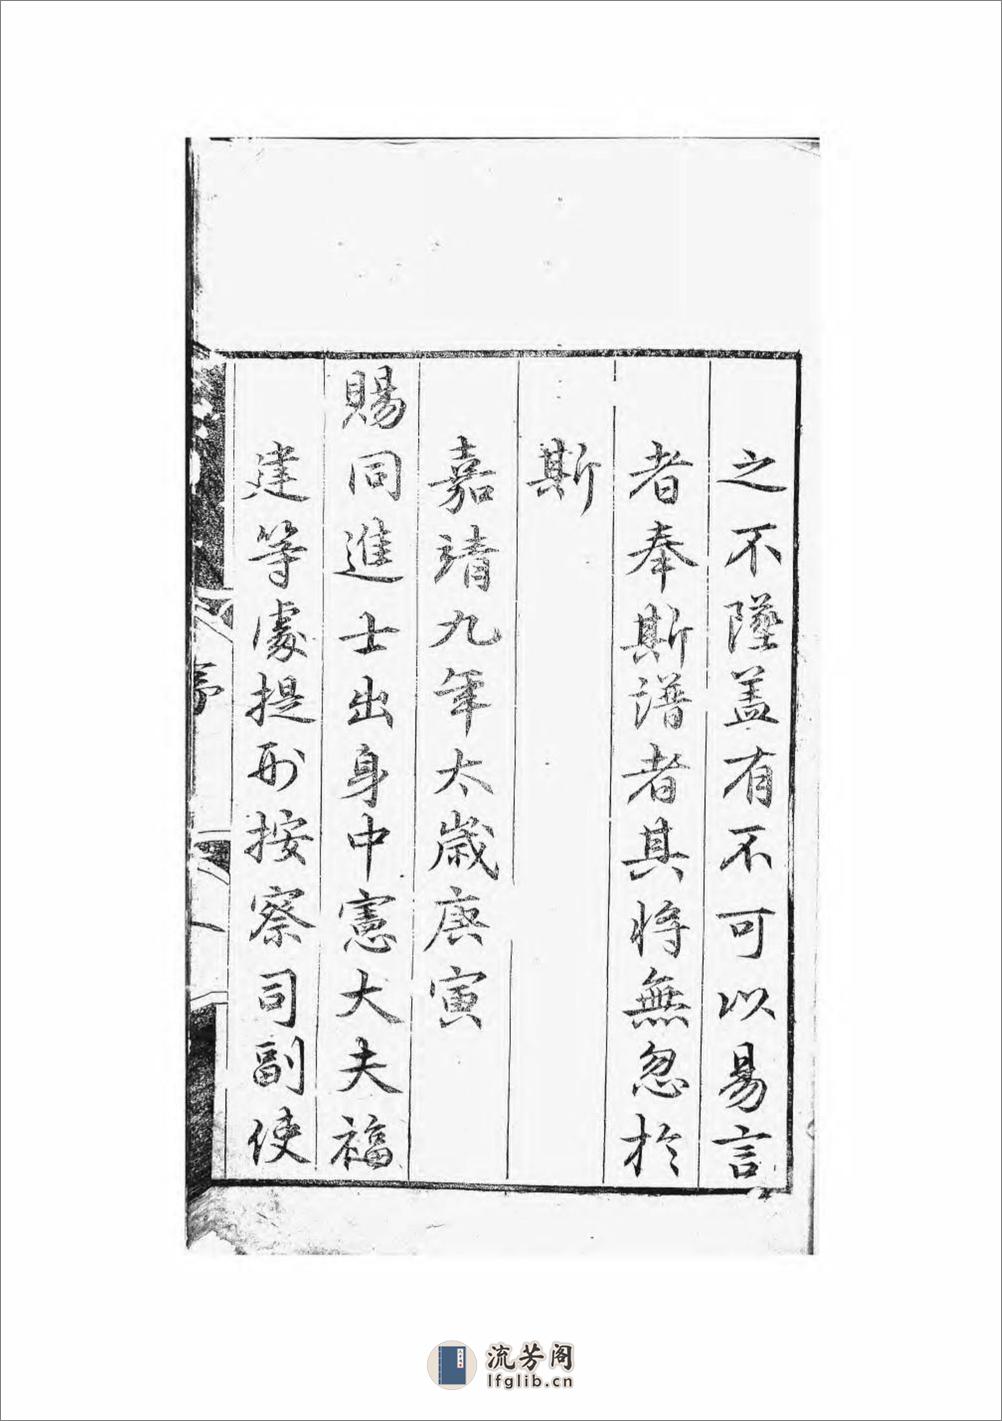 之不墜蓋有不可以易言
者奉斯譜者其將無忽於
斯
嘉靖九年太歲庚寅
賜同進士出身中憲大夫福
建等處提刑按察司副使
流芳阁
lfglib.cn